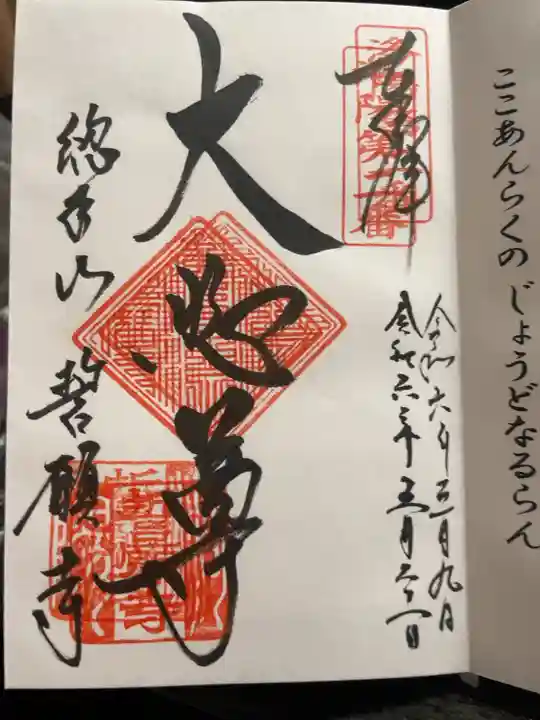 ここあんらくの じょうどなるらん
奉拝
洛陽第二番
令和六年三月九日
令和六年五月
大悲尊
總本山 誓願寺